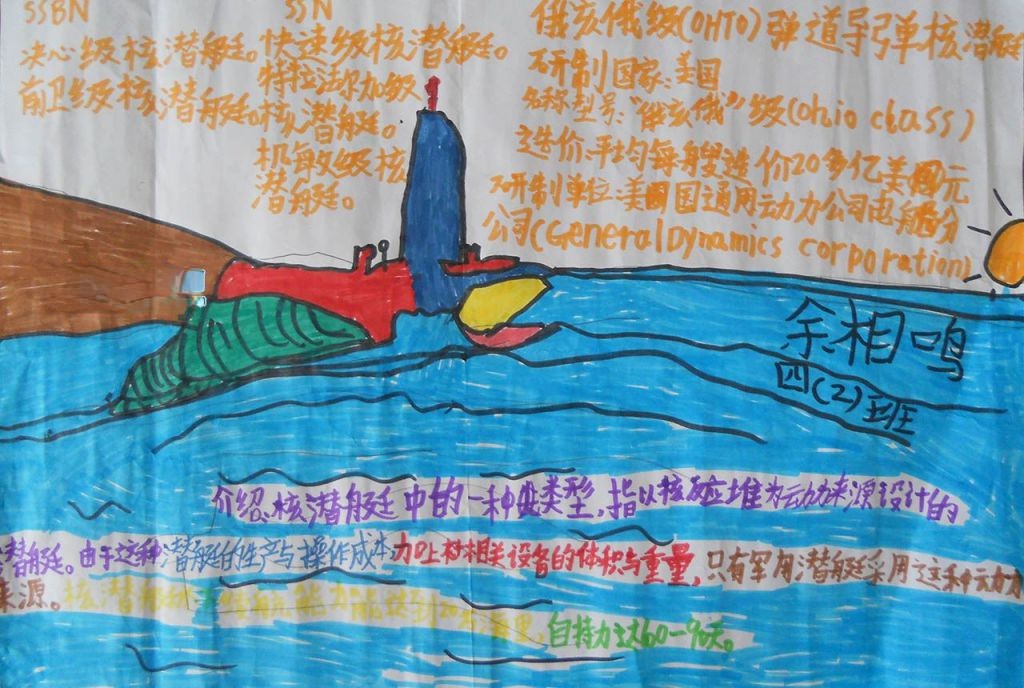 SSBN
决心级核潜艇。
前卫级核潜艇。
SSN
快速级核潜艇。
特拉法尔加级
核潜艇。
机敏级核
潜艇。
俄亥俄级(OHTO)弹道导弹核潜艇
研制国家:美国
名称型号:"俄亥俄"级(Ohio cbass)
造价:平均每艘造价20多亿美元
研制单位:美国国通用动力公司电船分
公司(General Dynamics corporation)
余相鸣
四(2)班
介绍:核潜艇中的一种此类型,指以核反应堆为动力来源设计的
潜艇。由于这种潜艇的生产与操作成本,力上对相关设备的体积与重量,只有军用潜艇采用这种动力
来源。核潜艇
海里,自持力达60-90天。